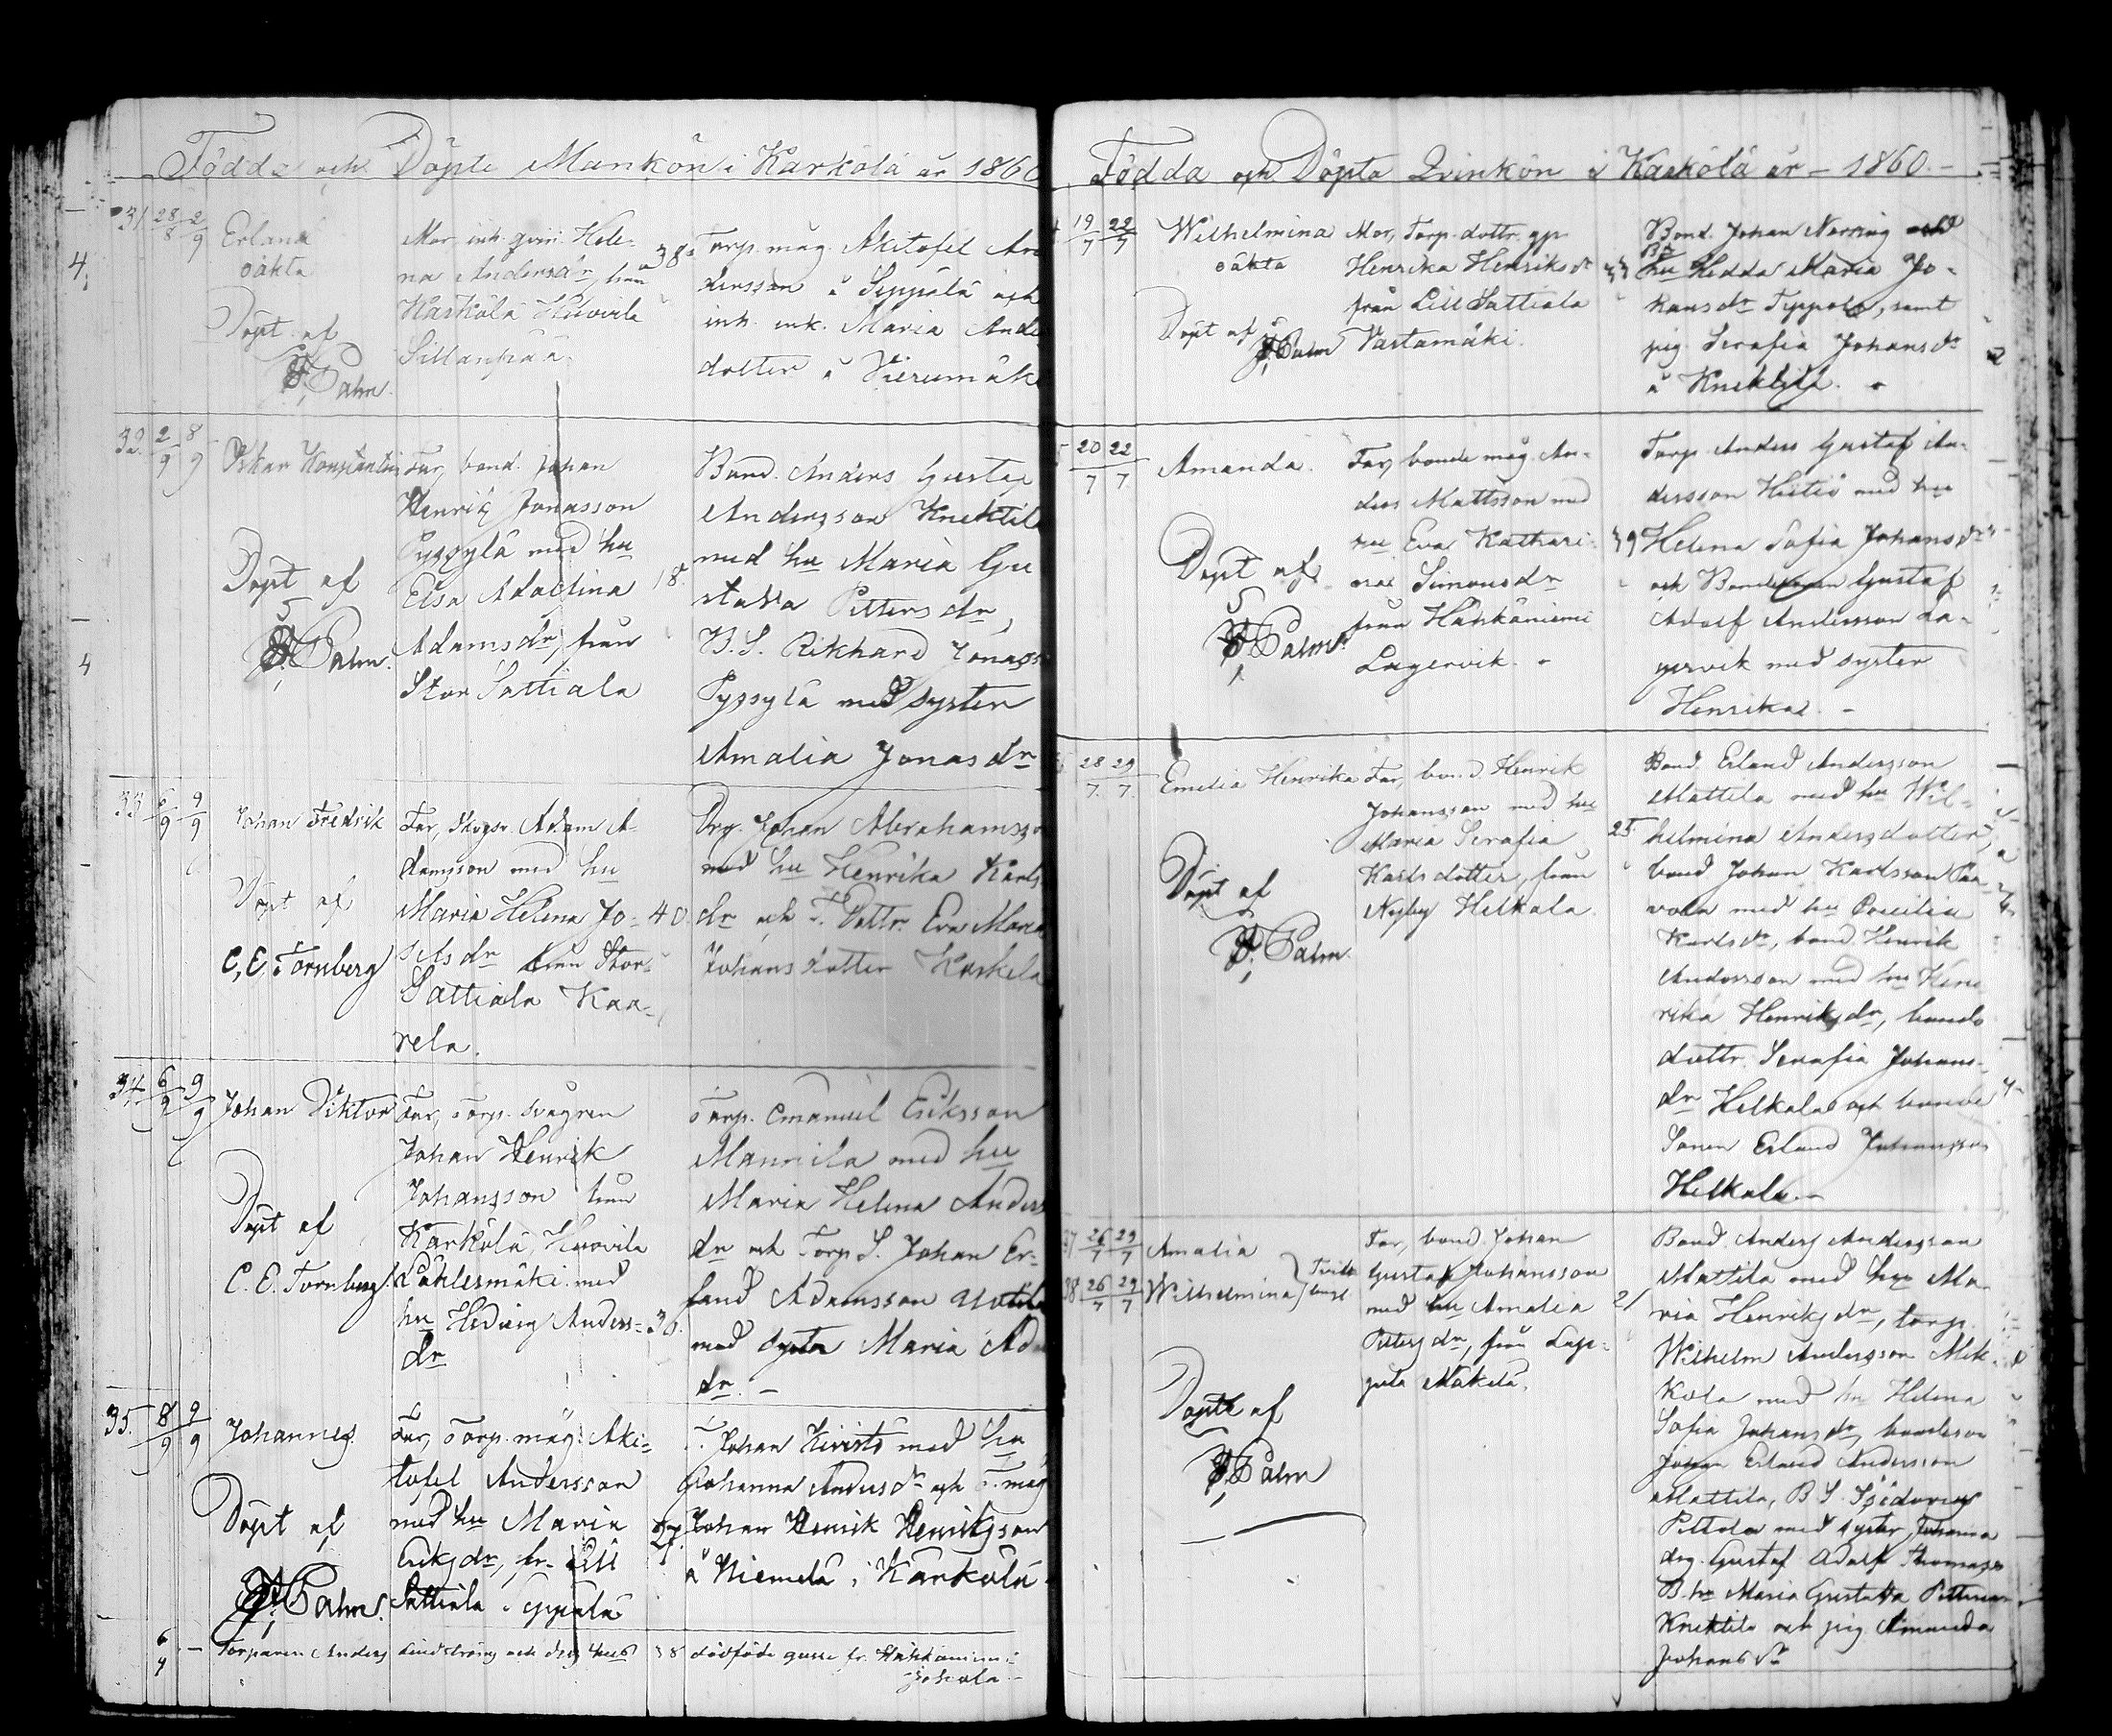 Födda och Döpte Mankön i Karkölä år 1860
31 28/8 2/9 Erland
oäkta
Döpt af
Palm.
Mor, inh. qvin. Hele-
na Andersdr från
Karkölä Huovila
Sillanpää.
38
Torp. måg Akitofel An
dersson å Seppälä och
inh. enk. Maria Ande
dotter å Vierumäk
32. 2/9 8/9 Oskar Konstantin
Döpt af
Palm.
Far, bond. Johan
Henrik Jonasson
Pyssylä med hu
Elsa Adolfina
Adamsdr, från
Stor Sattiala
18
Bond. Anders Gustaf
Andersson Knektil
med hu Maria Gu
stava Pettersdr,
B. S. Rikhard Jonass
Pyssylä med syster
Amalia Jonasdr
33 9/9 Johan Fredrik
Döpt af
C, E, Tornberg
Far, Adam A-
damsson med hu
Maria Helena Jo-
sefsdr från Stor-
Sattiala Kaa-
rela.
40
Drg. Johan Abrahamsso
med hu Henrika Karls
dr och T. Dottr. Eva Maria
Johansdotter Koskela
34. 6/9 9/9 Johan Viktor
Döpt af
C. E. Tornberg
Far, Torp. svågren
Johan Henrik
Johansson från
Karkölä, Huovila
med
hu Hedvig Anders-
dr
30.
Torp. Emanuel Eriksson
Mannila med hu
Maria Helena Anders
dr och Torp S. Johan Er-
land Adamsson
med syster Maria Ada
dr. -
35. 8/9 9/9 Johannes.
Döpt af
Palm.
Far, Torp. måg. Aki-
tofel Andersson
med hu Maria
Eriksdr, fr. Lill
Sattiala Seppälä
27.
T. Johan Kivistö med hu
Johanna Andersdr och T. måg
Johan Henrik Henriksson
å Niemelä i Karkölä
Torparen Anders Lindström och des hus 38 dödföde gosse fr. Hähkäniemi
Johola
Födda och Döpta Qvinkön i Karkölä år - 1860. -
19/7 22/7 Wilhelmina
oäkta
Döpt af
Palm
Mor, Torp. dottr. qp
Henrika Henriksdr
från Lill Sattiala
Vastamäki.
Bond. Johan Norring
hu Hedda Maria Jo-
hansdr Teppola, samt
pig. Serafia Johansdr
å Knektilä.
20/7 22/7 Amanda.
Döpt af
Palm
Far, bonde måg An-
ders Mattsson med
hu Eva Kathari-
na Simonsdr
från Hähkäniemi
Lagervik. -
39
Torp. Anders Gustaf An-
dersson Hietiö med hu
Helena Sofia Johansdr
och Gustaf
Adolf Andersson La-
gervik med syster
Henrika. -
28/7. 29/7. Emelia Henrika
Döpt af
Palm.
Far, bond. Henrik
Johansson med hu
Maria Serafia
Karlsdotter, från
Nyby Helkala
25.
Bond Erland Andersson
Mattila med hu Wil-
helmina Andersdotter,
bond Johan Karlsson Paa
vola med hu Cecilia
Karlsdr, bond. Henrik
Andersson med hu Hen
rika Henriksdr, bonde
dottr. Serafia Johans-
dr Helkala och bonde
Sonen Erland Johansson
Helkala. -
37 26/7 29/7 Amalia
38 26/7 29/7 Wilhelmina
Döpte af
Palm
Far, bond. Johan
Gustaf Johansson
med hu Amalia
Pettersdr, från Lep-
Mäkelä.
21
Bond Anders Andersson
Mattila med hu Ma-
ria Henriksdr, torp.
Wilhelm Andersson Mik
kola med hu Helena
Sofia Johansdr, bondeson
Johan Erland Andersson
Mattila, B S.
Pettola med syster Johanna
drg. Gustaf Adolf Thomass
B. hu Maria Gustava Petters
Knektila och pig Amanda
Johansdr